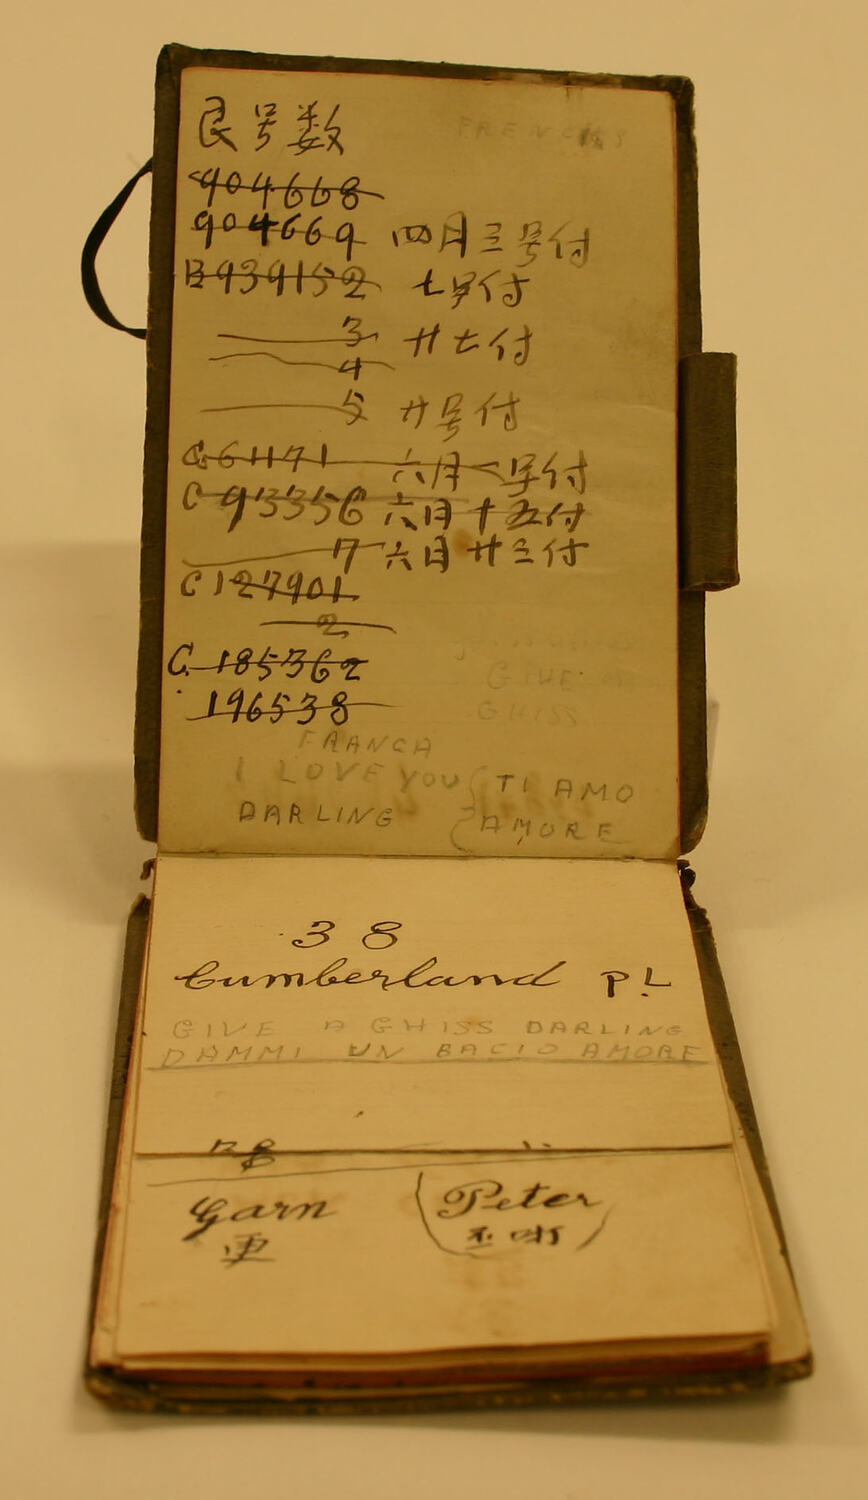 艮号数
904668
904669 四月三号付
B939152 七号付
3 廿七付
4
5 廿号付
C61171 六月一号付
C93356 六月十五付
7 六月廿三付
C127901
2
C.185362
196538
GIVE
GHISS
FRANCA
I LOVE YOU { TI AMO
DARLING { AMORE
38
Cumberland PL
GIVE A GHISS DARLING
DAMMI UN BACIO AMORE
Garn (Peter)
更 丕㗏